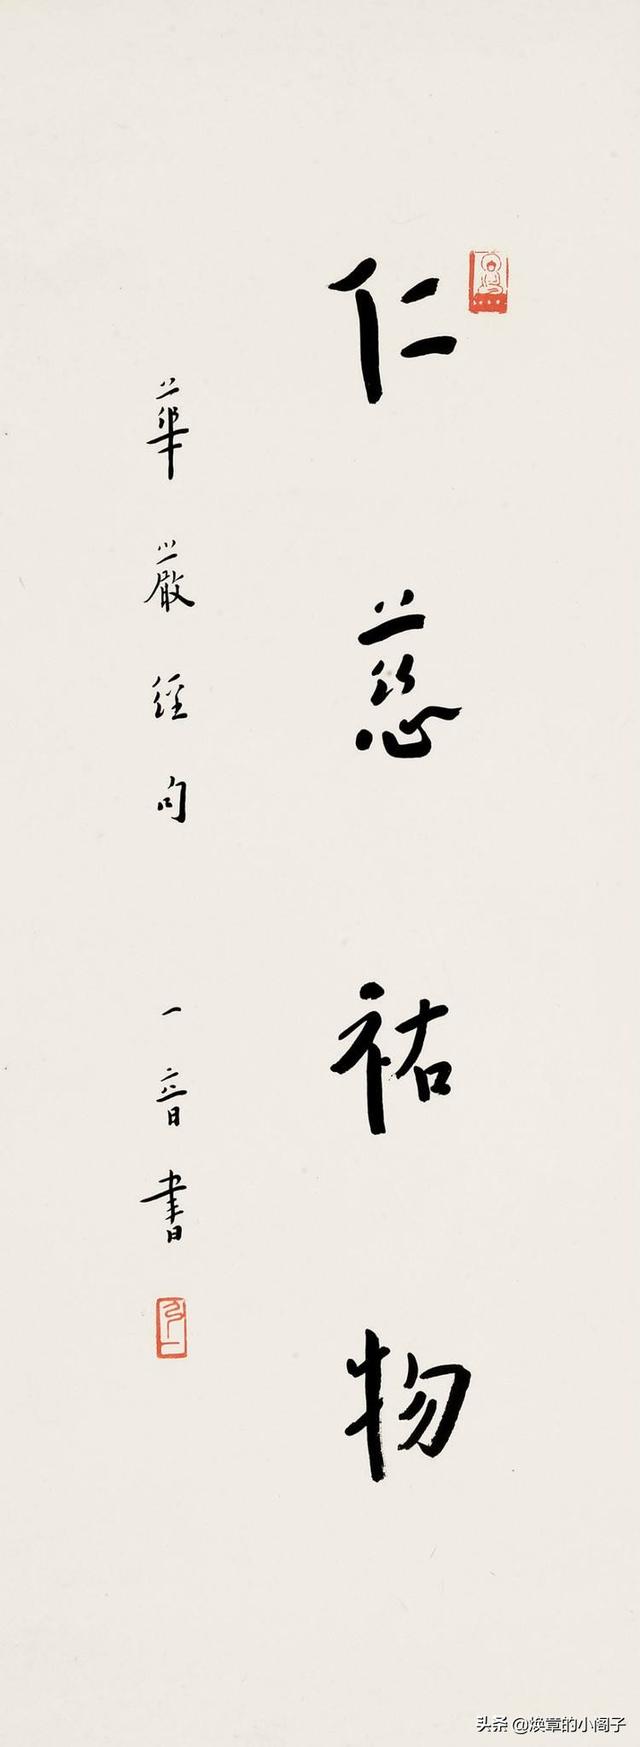 仁慈祐物
華嚴經句 一音書
头条 @焕章的小阁子